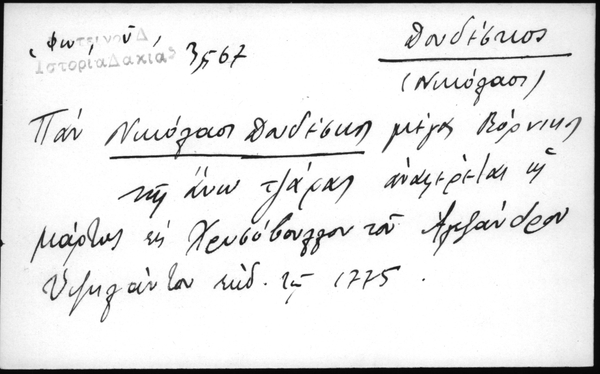 Φωτεινοῦ Δ
Ἱστορία Δακίας
3,567
Δουδέσκος
(Νικόλαος)
Πάν Νικόλαος Δουδέσκος μέγας Βόρνικος
τῆς ἄνω τζάρας ἀναφέρεται ὡς
μάρτυς εἰς Χρυσόβουλλον τοῦ Ἀλεξάνδρου
Ὑψηλάντου ἐκδ. τῷ 1775.